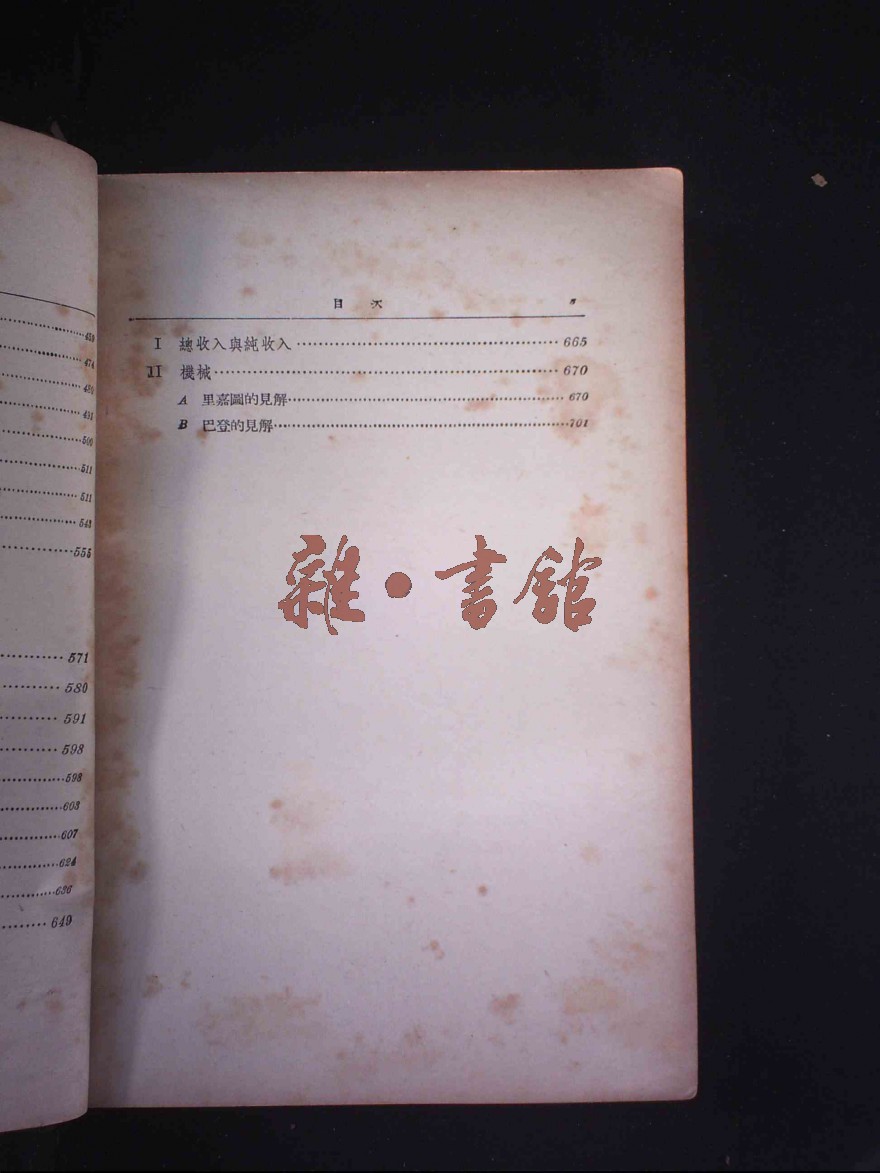 459
474
482
491
500
511
511
543
555
571
580
591
598
598
603
607
624
636
649
目次 5
I 總收入與純收入 665
II 機械 670
A 里嘉圖的見解 670
B 巴登的見解 701
雜·書館